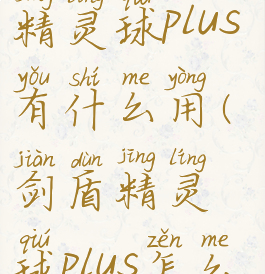 精灵球plus
yǒu shí me yòng
有什么用(
jiàn dùn jīng líng
剑盾精灵
qiú zěn me
球plus怎么